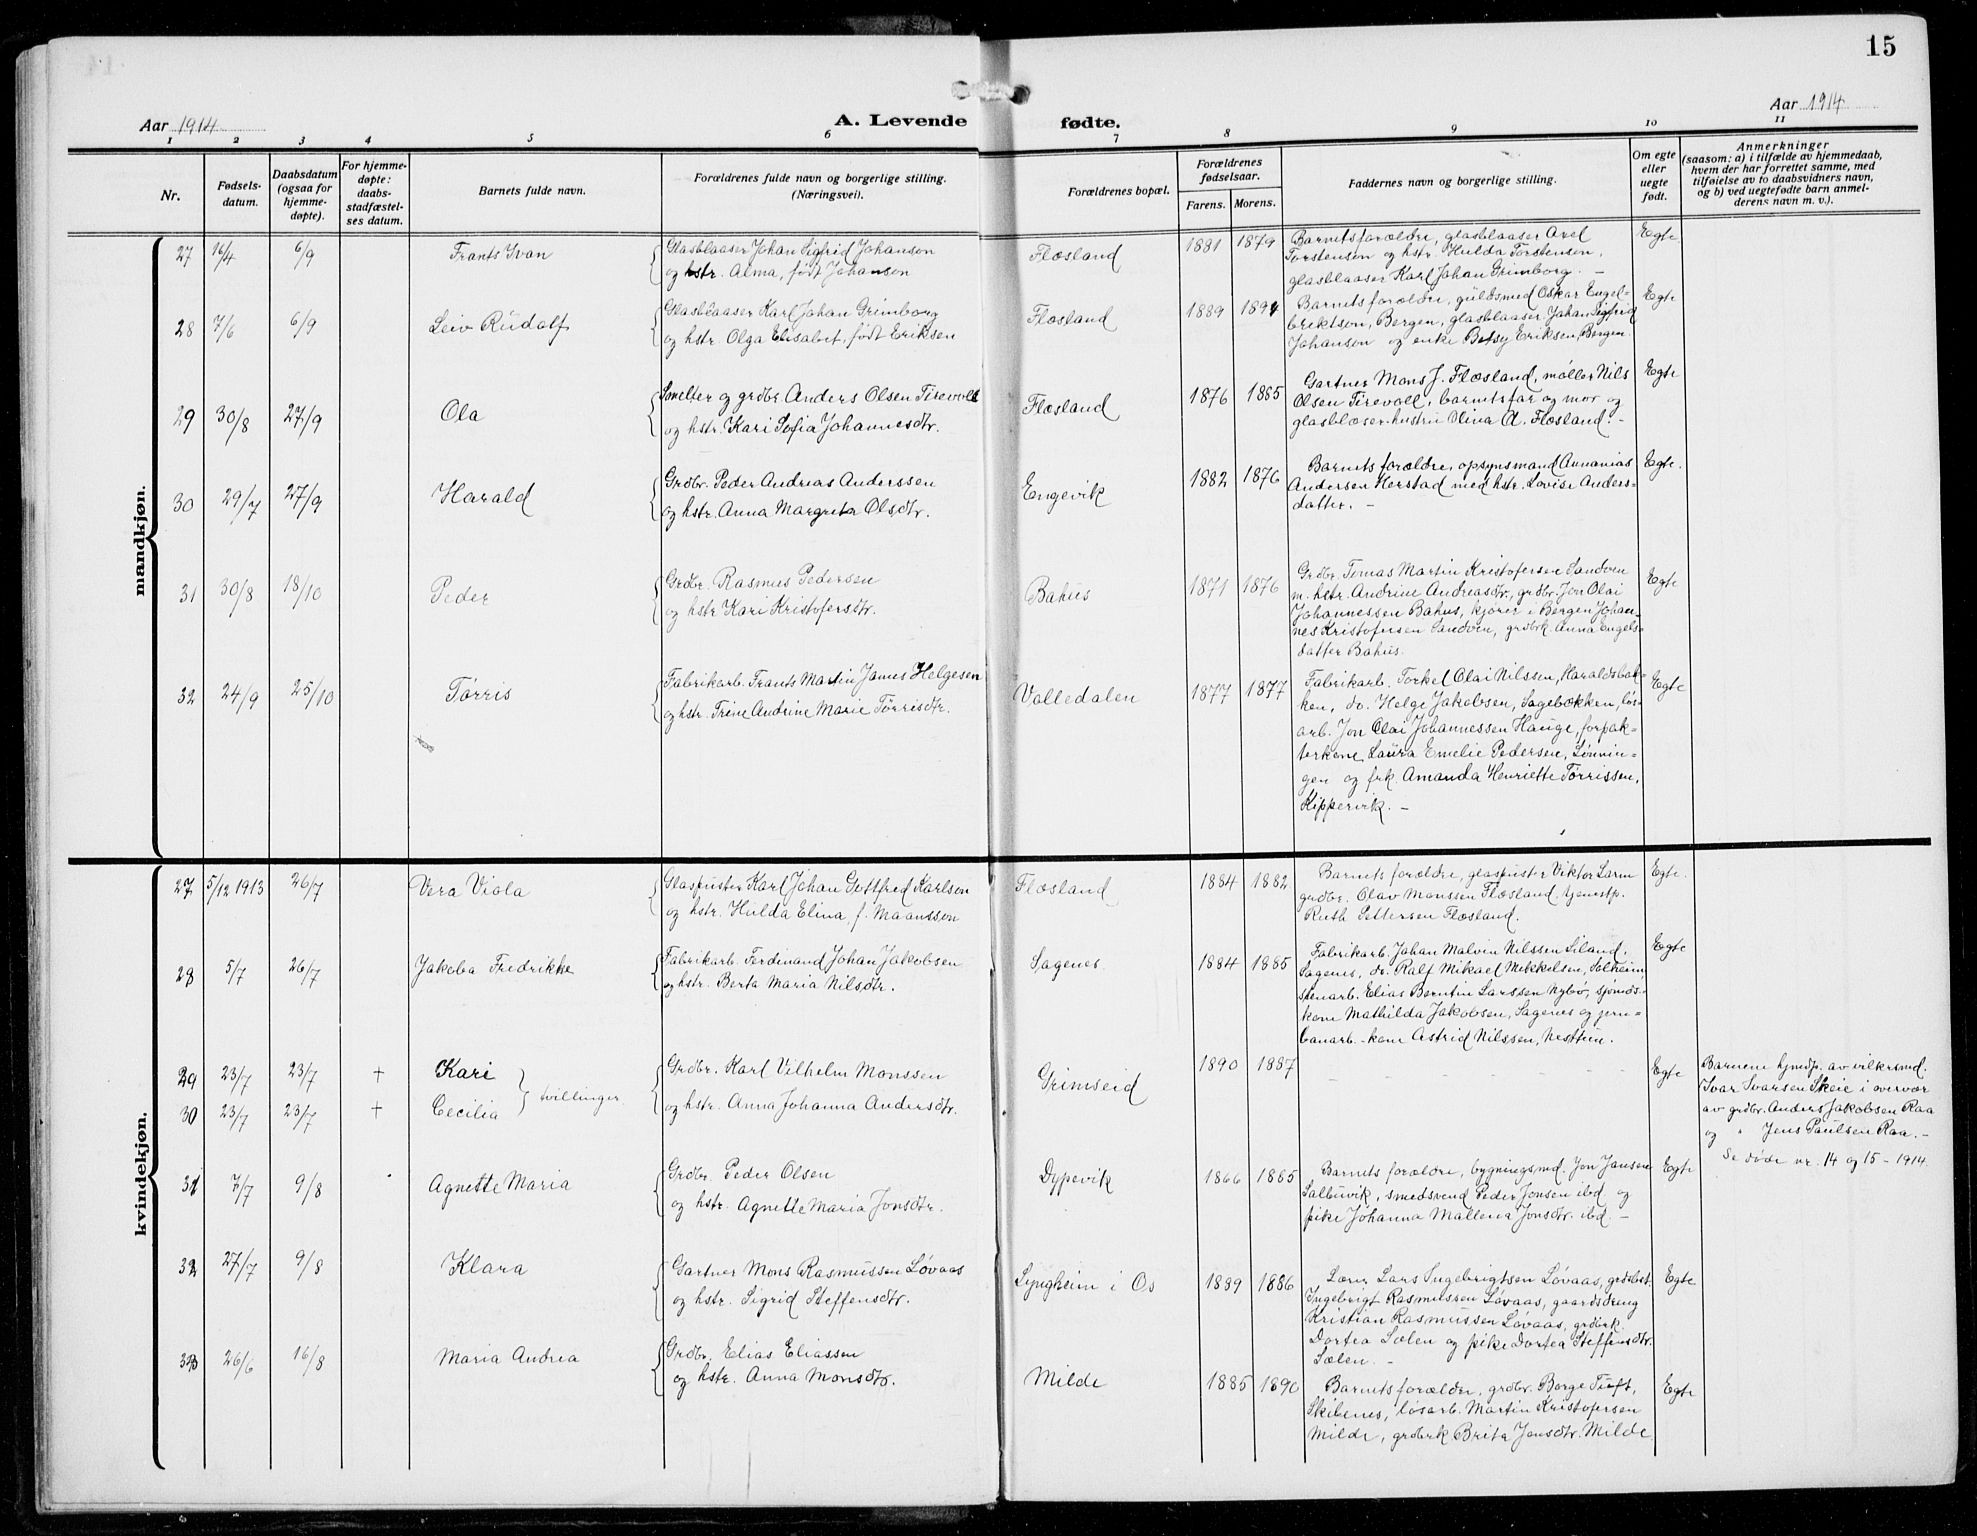 15
Aar 1914
A. Levende fødte.
Aar 1914
1 2 3 4 5 6 7 8 9 10 11
Nr.
Fødsels-
datum.
Daabsdatum
(ogsaa for
hjemme-
døpte).
For hjemme-
døpte:
daabs-
stadfæstel-
ses datum.
Barnets fulde navn.
Forældrenes fulde navn og borgerlige stilling.
(Næringsvei).
Forældrenes bopæl.
Forældrenes
fødselsaar.
Farens. Morens.
Faddernes navn og borgerlige stilling.
Om egte
eller
uegte
født.
Anmerkninger
(saasom: a) i tilfælde av hjemmedaab,
hvem der har forrettet samme, med
tilføielse av to daabsvidners navn,
og b) ved uegtefødte barn anmel-
derens navn m. v.).
mandkjøn.
27 16/4 6/9 Frants Ivan
Glasblaaser Johan Sigfrid Johanson
og hstr. Alma, født Johanson
Flesland 1881 1879
Barnets forældre, glasblaaser Axel
Torstenson og hstr. Hulda Torstensen,
glasblaaser Karl Johan Grimborg. –
Egte
28 7/6 6/9 Leiv Rudolf
Glasblaaser Karl Johan Grimborg
og hstr. Olga Elisabet, født Eriksen
Flesland 1889 1894
Barnets forældre, guldsmed Oskar Engel-
brektson, Bergen, glasblaaser Johan Sigfrid
Johanson og enke Betsy Eriksen, Bergen.
Egte
29 30/8 27/9 Ola
Smelter og grdbr. Anders Olsen Tirevoll
og hstr. Kari Sofia Johannesdtr.
Flesland 1876 1885
Gartner Mons J. Flesland, møller Nils
Olsen Tirevoll, barnets far og mor og
glasblæser-hustru Olina A. Flesland. –
Egte
30 29/7 27/9 Harald
Grdbr. Peder Andreas Anderssen
og hstr. Anna Margreta Olsdtr.
Engevik 1882 1876
Barnets forældre, opsynsmand Annanias
Andersen Herstad med hstr. Lovise Anders-
datter. –
Egte.
31 30/8 18/10 Peder
Grdbr. Rasmus Pedersen
og hstr. Kari Kristofersdtr.
Bahus 1871 1876
Grdbr. Tomas Martin Kristofersen Sandven
m. hstr. Andrine Andreasdtr., grdbr. Jon Olai
Johannessen Bahus, kjører i Bergen Johan-
nes Kristofersen Sandven, grdbrk. Anna Engels-
datter Bahus.
Egte
32 24/9 25/10 Tørris
Fabrikarb. Frants Martin James Helgesen
og hstr. Trine Andrine Marie Tørrisdtr.
Valledalen 1877 1877
Fabrikarb. Torkel Olai Nilssen, Haraldsbak-
ken, do. Helge Jakobsen, Sagebækken, løs-
arb. Jon Olai Johannessen Hauge, forpak-
terkone Laura Emelie Pedersen, Lønnin-
gen og frk. Amanda Henriette Tørrissen,
Kippervik. –
Egte
kvindekjøn.
27 5/12 1913 26/7 Vera Viola
Glaspuster Karl Johan Gottfred Karlson
og hstr. Hulda Elina, f. Maansson
Flesland 1884 1882
Barnets forældre, glaspuster Viktor Larm
grdbr. Olav Monssen Flesland, tjenestp.
Ruth Pettersen Flesland.
Egte.
28 5/7 26/7 Jakoba Fredrikke
Fabrikarb. Ferdinand Johan Jakobsen
og hstr. Berta Maria Nilsdtr.
Sagenes 1884 1885
Fabrikarb. Johan Malvin Nilssen Siland,
Sagenes, do. Ralf Mikael Mekkelsen, Solheim,
stenarb. Elias Berntin Larssen Nybø, sjømds.-
kone Mathilda Jakobsen, Sagenes og jern-
banarb.-kone Astrid Nilssen, Nesttun.
Egte
29 23/7 23/7 + Kari
30 23/7 23/7 + Cecilia
tvillinger
Grdbr. Karl Vilhelm Monssen
og hstr. Anna Johanna Andersdtr.
Grimseid 1890 1887
– – – – – –
Egte
Barnene hjmdp. av vilkrsmd.
Ivar Ivarsen Skeie i overvær
av grdbr. Anders Jakobsen Raa
og " Jens Paulsen Raa. –
Se døde nr. 14 og 15 – 1914.
31 7/7 9/8 Agnette Maria
Grdbr. Peder Olsen
og hstr. Agnette Maria Jonsdtr.
Dypevik 1866 1885
Barnets forældre, bygningsmd. Jon Jansen
Salbuvik, smedsvend Peder Jonsen ibd og
pike Johanna Mallena Jonsdtr. ibd. –
Egte
32 27/7 9/8 Klara
Gartner Mons Rasmussen Løvaas
og hstr. Sigrid Steffensdtr.
Lyngheim i Os 1889 1886
Lærer Lars Ingebrigtsen Løvaas, grdbest.
Ingebrigt Rasmussen Løvaas, gaardsdreng
Kristian Rasmussen Løvaas, grdbrk.
Dortea Sælen og pike Dortea Steffensdtr.
Sælen. –
Egte
33 26/6 16/8 Maria Andrea
Grdbr. Elias Eliassen
og hstr. Anna Monsdtr.
Milde 1885 1890
Barnets forældre, grdbr. Børge Tuft,
Skibenes, løsarb. Martin Kristofersen
Milde, grdbrk Brita Jensdtr. Milde
Egte